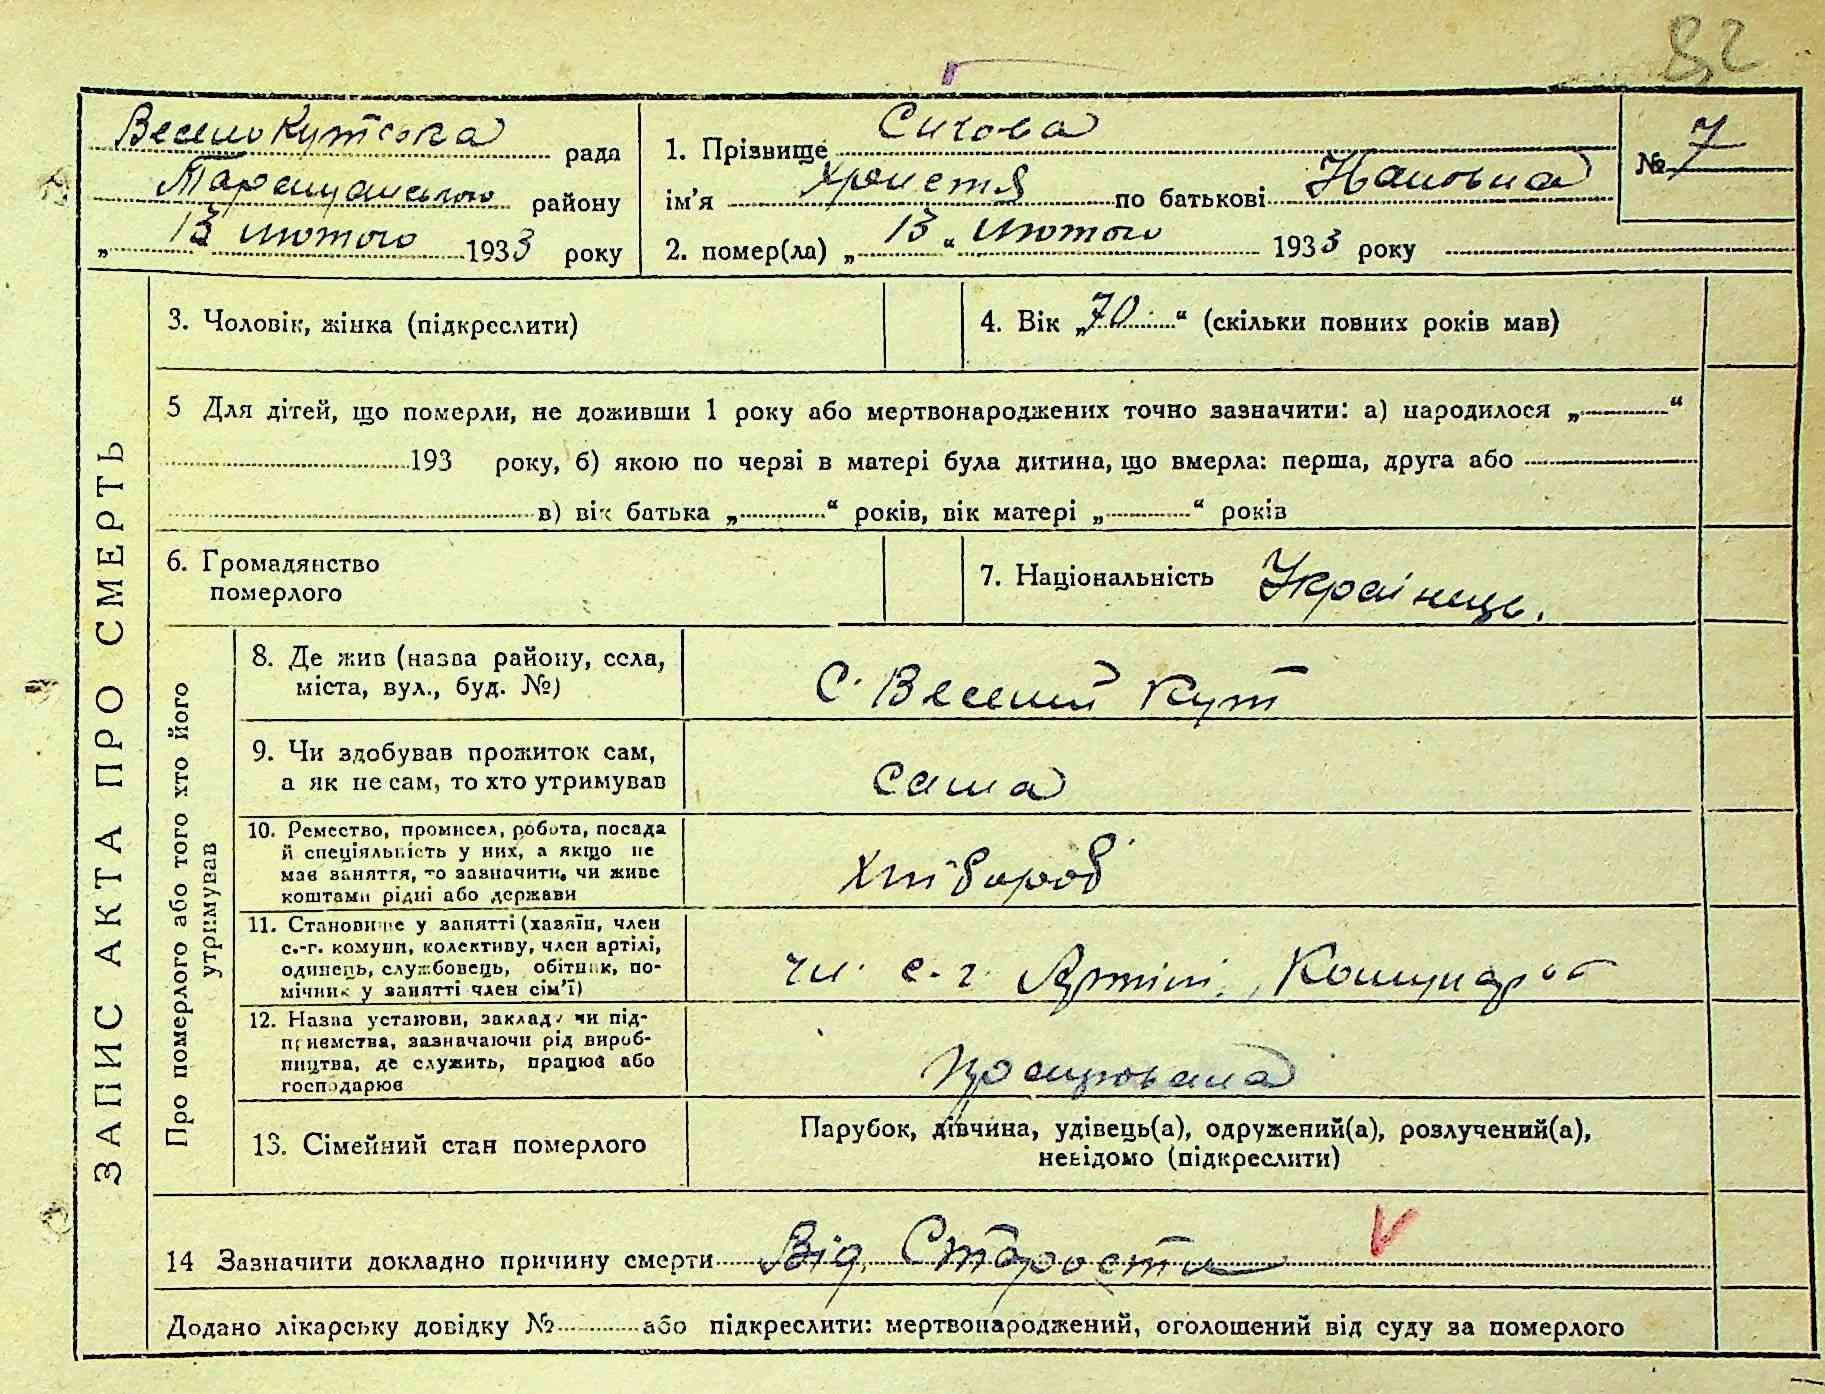 82
ВеселоКутська рада
Таращанського району
„ 13 лютого 1933 року
1. Прізвище Сичова
ім'я Христя по батькові
2. помер(ла) „ 13 “ лютого 1933 року
№ 7
ЗАПИС АКТА ПРО СМЕРТЬ
3. Чоловік, жінка (підкреслити)
4. Вік „ 70 “ (скільки повних років мав)
5 Для дітей, що померли, не доживши 1 року або мертвонароджених точно зазначити: а) народилося „ “
193 року, б) якою по черзі в матері була дитина, що вмерла: перша, друга або
в) вік батька „ “ років, вік матері „ “ років
6. Громадянство
померлого
7. Національність Українець.
Про померлого або того хто його
утримував
8. Де жив (назва району, села,
міста, вул., буд. №)
с. Веселий Кут
9. Чи здобував прожиток сам,
а як не сам, то хто утримував
сама
10. Ремество, промисел, робота, посада
й спеціяльність у них, а якщо не
має заняття, то зазначити, чи живе
коштами рідні або держави
Хлібороб
11. Становище у занятті (хазяїн, член
с.-г. комуни, колективу, член артілі,
одинець, службовець, обітник, по-
мічник у занятті член сім'ї)
чл. с.-г. Артілі, Комунар
12. Назва установи, закладу чи під-
приємства, зазначаючи рід вироб-
ництва, де служить, працює або
господарює
працювала
13. Сімейний стан померлого
Парубок, дівчина, удівець(а), одружений(а), розлучений(а),
невідомо (підкреслити)
14 Зазначити докладно причину смерти Від Старости
Додано лікарську довідку № або підкреслити: мертвонароджений, оголошений від суду за померлого